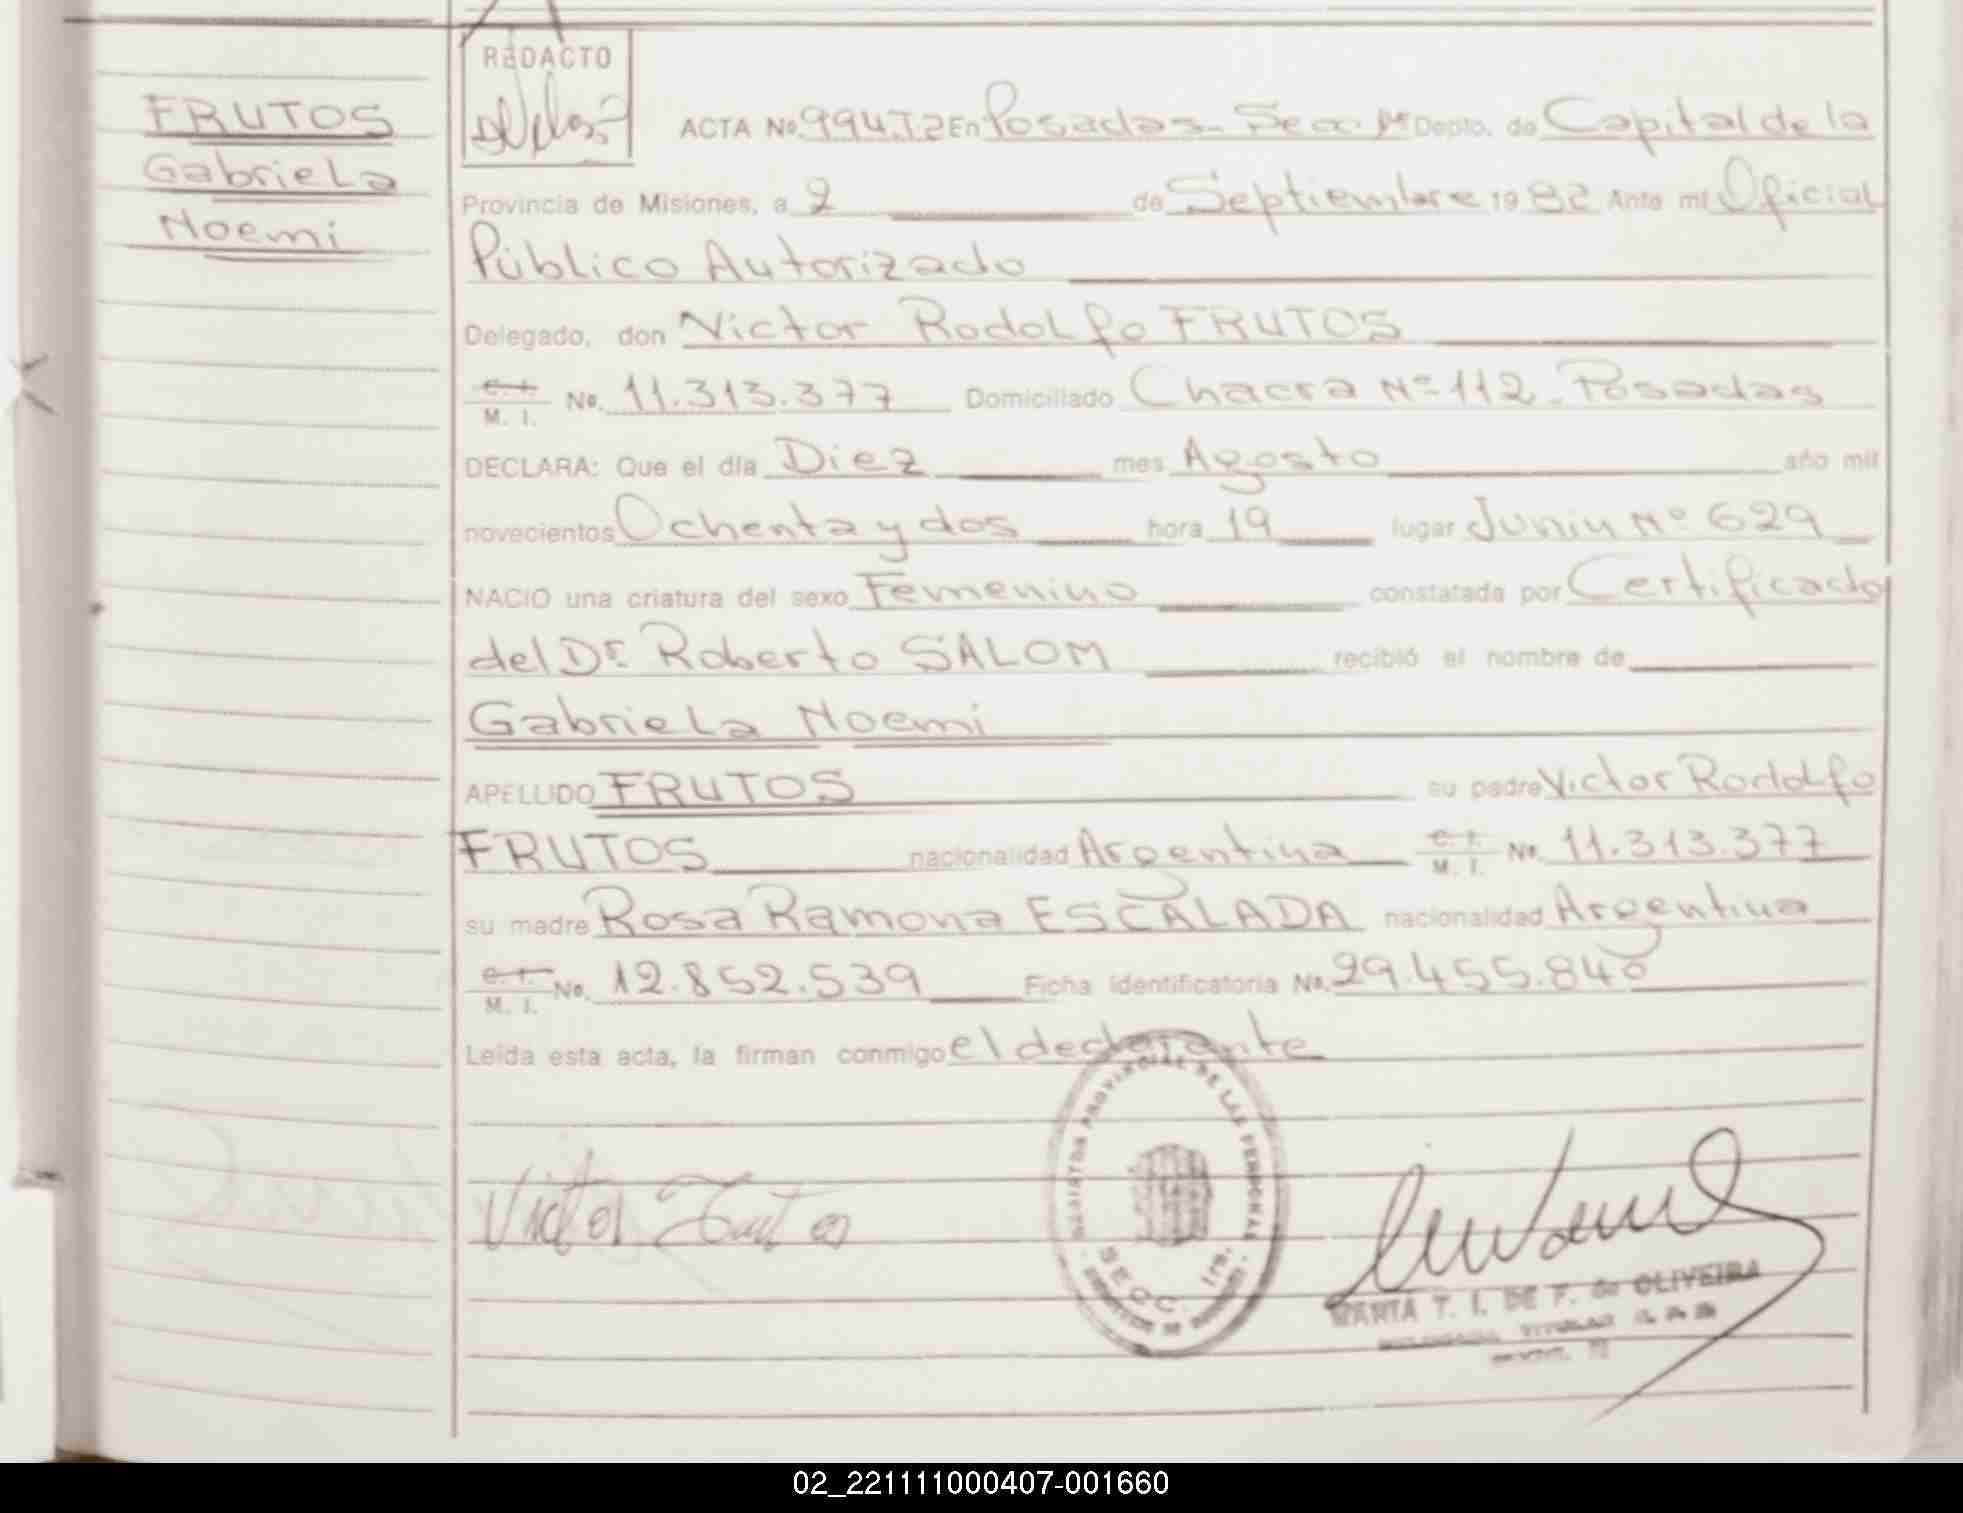 FRUTOS
Gabriela
Noemi
REDACTO
ACTA No. 994.T.2 En Posadas - Secc. 1ª Depto. de Capital de la
Provincia de Misiones, a 2 de Septiembre 1982 Ante mí Oficial
Público Autorizado
Delegado, don Victor Rodolfo FRUTOS
C. I.
M. I. No. 11.313.377 Domiciliado Chacra Nº 112 - Posadas
DECLARA: Que el día Diez mes Agosto año mil
novecientos Ochenta y dos hora 19 lugar Junin Nº 629
NACIO una criatura del sexo Femenino constatada por Certificado
del Dr. Roberto SALOM recibió el nombre de
Gabriela Noemi
APELLIDO FRUTOS su padre Victor Rodolfo
FRUTOS nacionalidad Argentina C. I.
M. I. No. 11.313.377
su madre Rosa Ramona ESCALADA nacionalidad Argentina
C. I.
M. I. No. 12.852.539 Ficha identificatoria No. 29.455.840
Leída esta acta, la firman conmigo el declarante
REGISTRO PROVINCIAL DE LAS PERSONAS
SECC. 1ra.
Victor Frutos
MARTA T. I. DE F. de OLIVEIRA
02_221111000407-001660